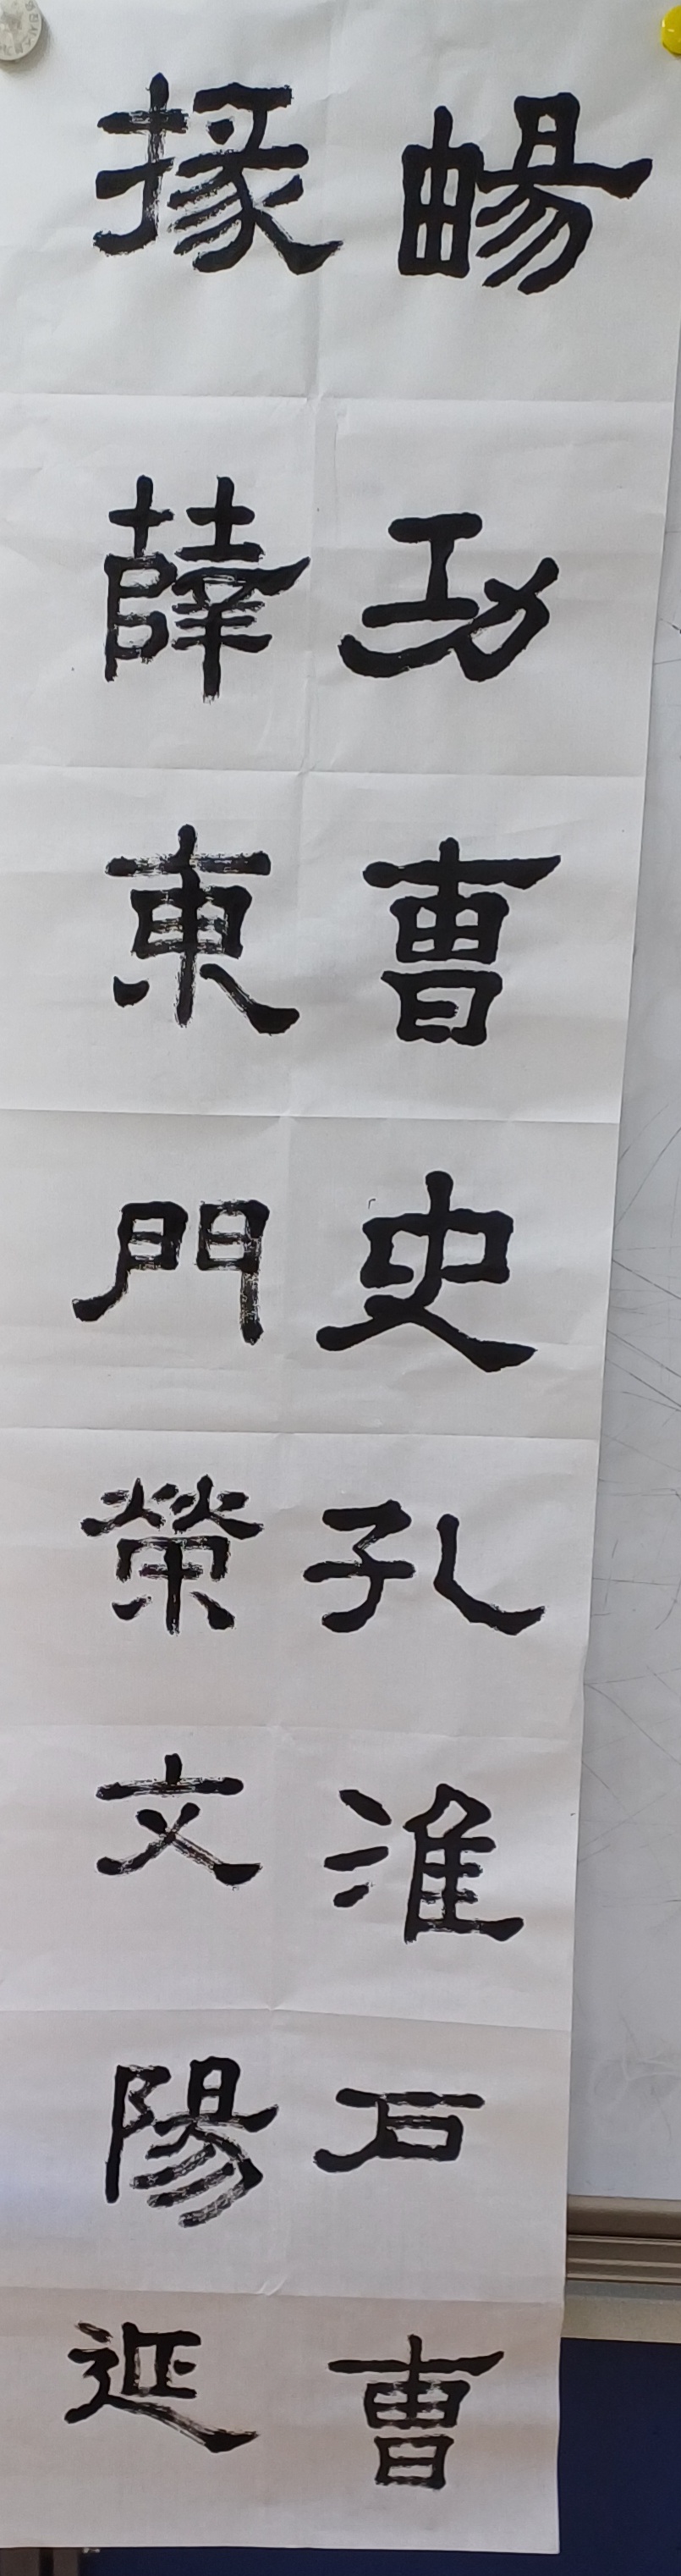 暘功曹史孔淮戶曹
掾薛東門榮文陽延